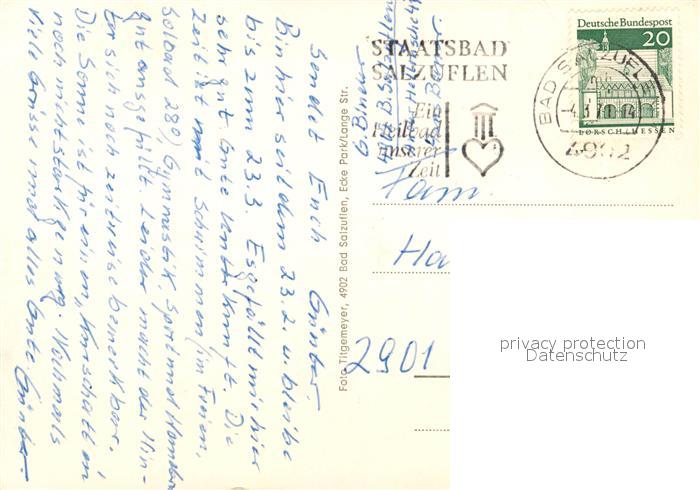 Sendet Euch Günter.
Bin hier seit dem 23.2. u. bleibe
bis zum 23.3. Es gefällt mir hier
sehr gut. Gute Unterkunft. Die
Zeit ist mit Schwimmen (im Freien,
Solbad 28°) Gymnastik, Sport und Wandern
gut ausgefüllt. Leider macht der Win-
ter sich noch zeitweise bemerkbar.
Die Sonne ist für einen "Kurschatten"
noch nicht stark genug. Nochmals
viele Grüsse und alles Gute Günter.
Foto Titgemeyer, 4902 Bad Salzuflen, Ecke Park/Lange Str.
STAATSBAD
SALZUFLEN
Ein
Heilbad
unserer
Zeit
BAD SALZUFLEN
4902
Deutsche Bundespost
20
LORSCH/HESSEN
G.
4902 B. Salzuflen
Fam.
Ha
2901
privacy protection
Datenschutz